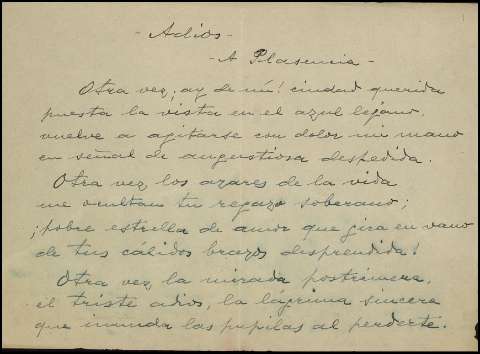 - Adios -
- A Plasencia -
Otra vez ¡ay de mí! ciudad querida
puesta la vista en el azul lejano,
vuelve a agitarse con dolor mi mano
en señal de angustiosa despedida.
Otra vez los azares de la vida
me ocultan tu regazo soberano;
¡pobre estrella de amor que gira en vano
de tus cálidos brazos desprendida!
Otra vez, la mirada postrimera,
el triste adios, la lagrima sincera
que inunda las pupilas al perderte.